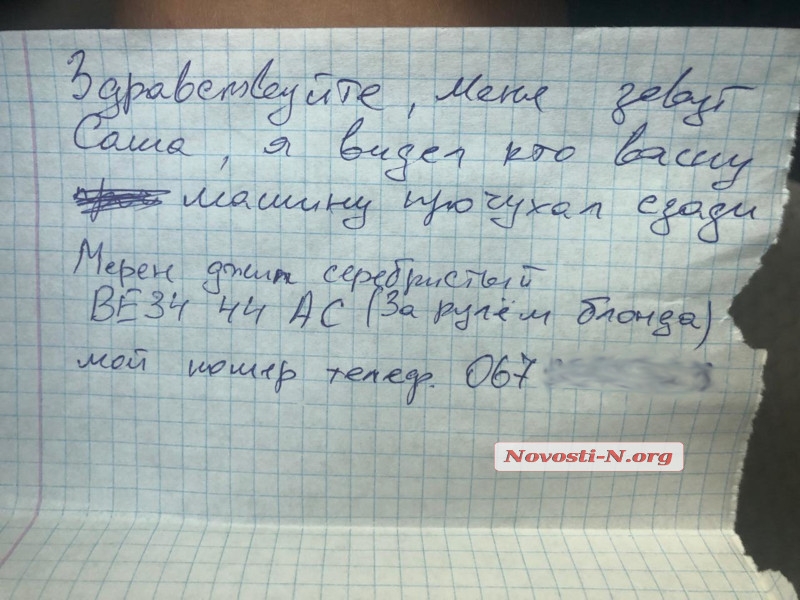 Здравствуйте, меня зовут
Саша, я видел кто вашу
машину прочухал сзади
Мерен джип серебристый
ВЕ34 44 АС (За рулём блонда)
мой номер телеф. 067
Novosti-N.org